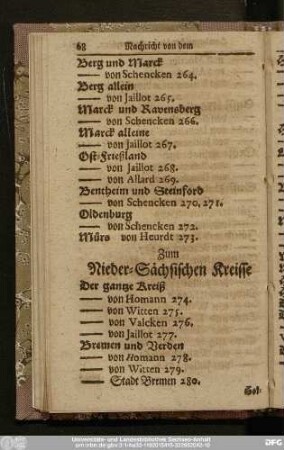 68 Nachricht von dem
Berg und Marck
—— von Schencken 264.
Berg allein
—— von Jaillot 265.
Marck und Ravensberg
—— von Schencken 266.
Marck alleine
—— von Jaillot 267.
Ost-Frießland
—— von Jaillot 268.
—— von Allard 269.
Bentheim und Steinford
—— von Schencken 270, 271.
Oldenburg
—— von Schencken 272.
Mürs von Heurdt 273.
Zum
Nieder-Sächsischen Kreisse
Der gantze Kreiß
—— von Homann 274.
—— von Witten 275.
—— von Valcken 276.
—— von Jaillot 277.
Bremen und Verden
—— von Homann 278.
—— von Witten 279.
—— Stadt Bremen 280.
Hol-
Universitäts- und Landesbibliothek Sachsen-Anhalt
DFG